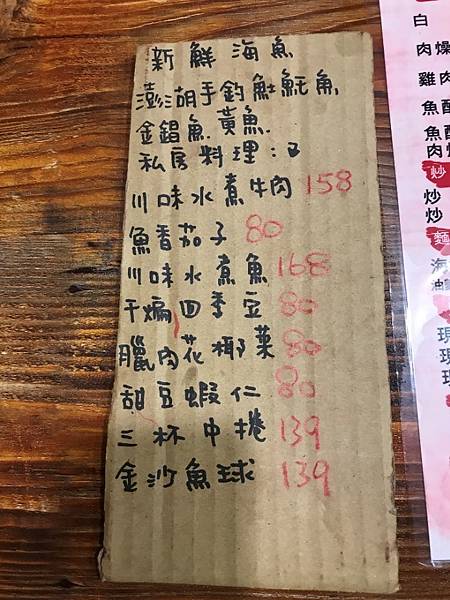 新鮮海魚
澎湖手釣魠魚
金鯧魚.黃魚.
私房料理:
川味水煮牛肉 158
魚香茄子 80
川味水煮魚 168
干煸四季豆 80
臘肉花椰菜 80
甜豆蝦仁 80
三杯中捲 139
金沙魚球 139
白
肉燥
雞肉
魚酥
魚酥
肉燥
炒
炒
炒
麵
海
油
現
現
現